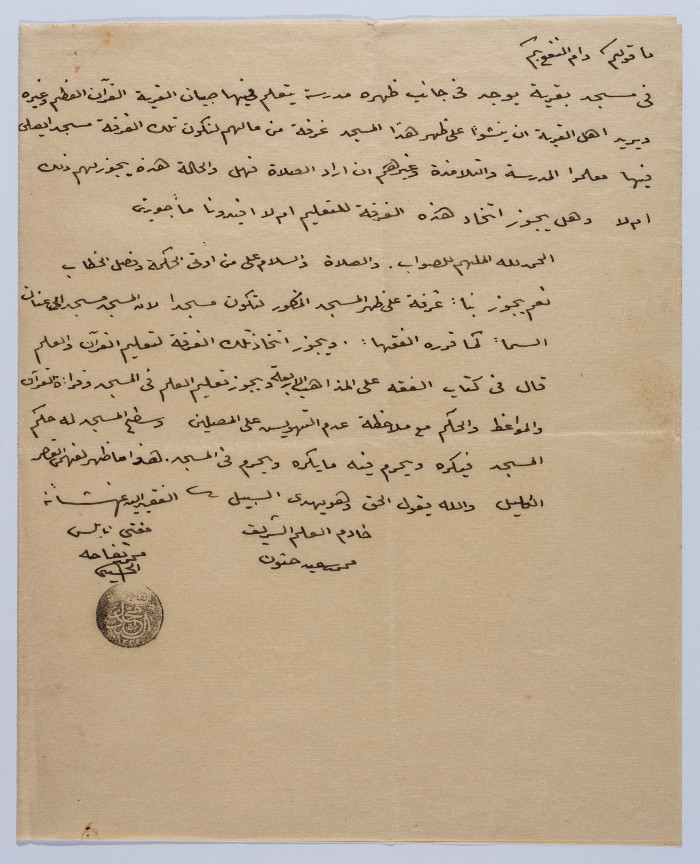 ما قولكم دام النفع بكم
في مسجد بقرية يوجد في جانب ظهره مدرسة يتعلم فيها صبيان القرية القرآن العظيم وغيره
ويريد اهل القرية ان ينشئوا على ظهر هذا المسجد غرفة من مالهم لتكون تلك الغرفة مسجدا يصلى
فيها معلموا المدرسة والتلامذة وغيرهم ان اراد الصلاة فهل والحالة هذه يجوز لهم ذلك
ام لا وهل يجوز اتخاذ هذه الغرفة للتعليم ام لا افيدونا مأجورين
الحمد لله الملهم للصواب. والصلاة والسلام على من اوتي الحكمة وفصل الخطاب
نعم يجوز بناء غرفة على ظهر المسجد المذكور لتكون مسجدا لان المسجد مسجد الى عنان
السماء كما قرره الفقهاء. ويجوز اتخاذ تلك الغرفة لتعليم القرآن والعلم
قال في كتاب الفقه على المذاهب الاربعة ويجوز تعليم العلم في المسجد وقراءة القرآن
والمواعظ والحكم مع ملاحظة عدم التهويش على المصلين وسطح المسجد له حكم
المسجد فيكره ويحرم فيه ما يكره ويحرم في المسجد. هذا ما ظهر لفهمي القاصر
الكليل والله يقول الحق وهو يهدي السبيل الفقير اليه عز شأنه
خادم العلم الشريف مفتي نابلس
محمد سعيد حنون محمد تفاحه
الحسيني